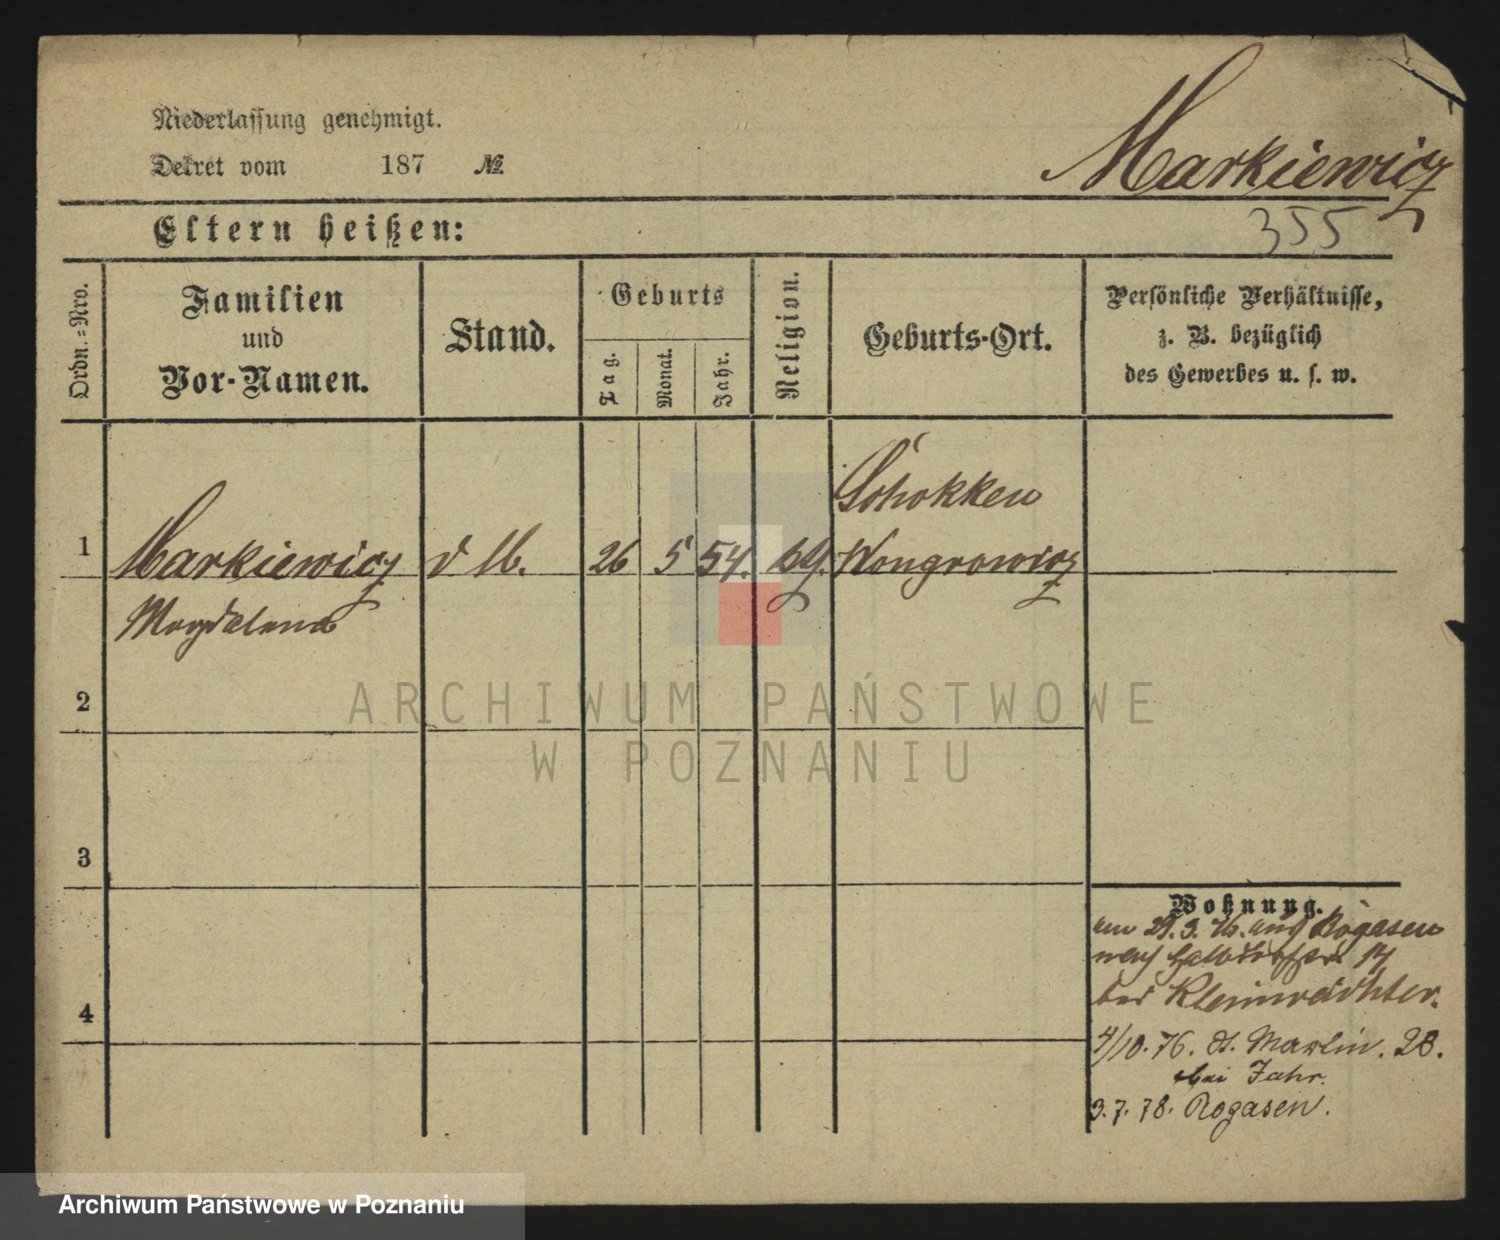 Niederlassung genehmigt.
Dekret vom 187 №
Markiewicz
355
Eltern heißen:
Ordn.-Nro.
Familien
und
Vor-Namen.
Stand.
Geburts
Tag.
Monat.
Jahr.
Religion.
Geburts-Ort.
Persönliche Verhältnisse,
z. B. bezüglich
des Gewerbes u. s. w.
Schokken
1 Markiewicz d M. 26 5 54. Wongrowicz
Magdalena
2
ARCHIWUM PAŃSTWOWE
W POZNANIU
3
Wohnung.
am 29. 3. 76. aus Rogasen
nach Halbdorfstr 14
bei Kleinwächter.
4
4/10. 76. St. Martin. 28.
bei Jahr.
3. 7. 78. Rogasen.
Archiwum Państwowe w Poznaniu